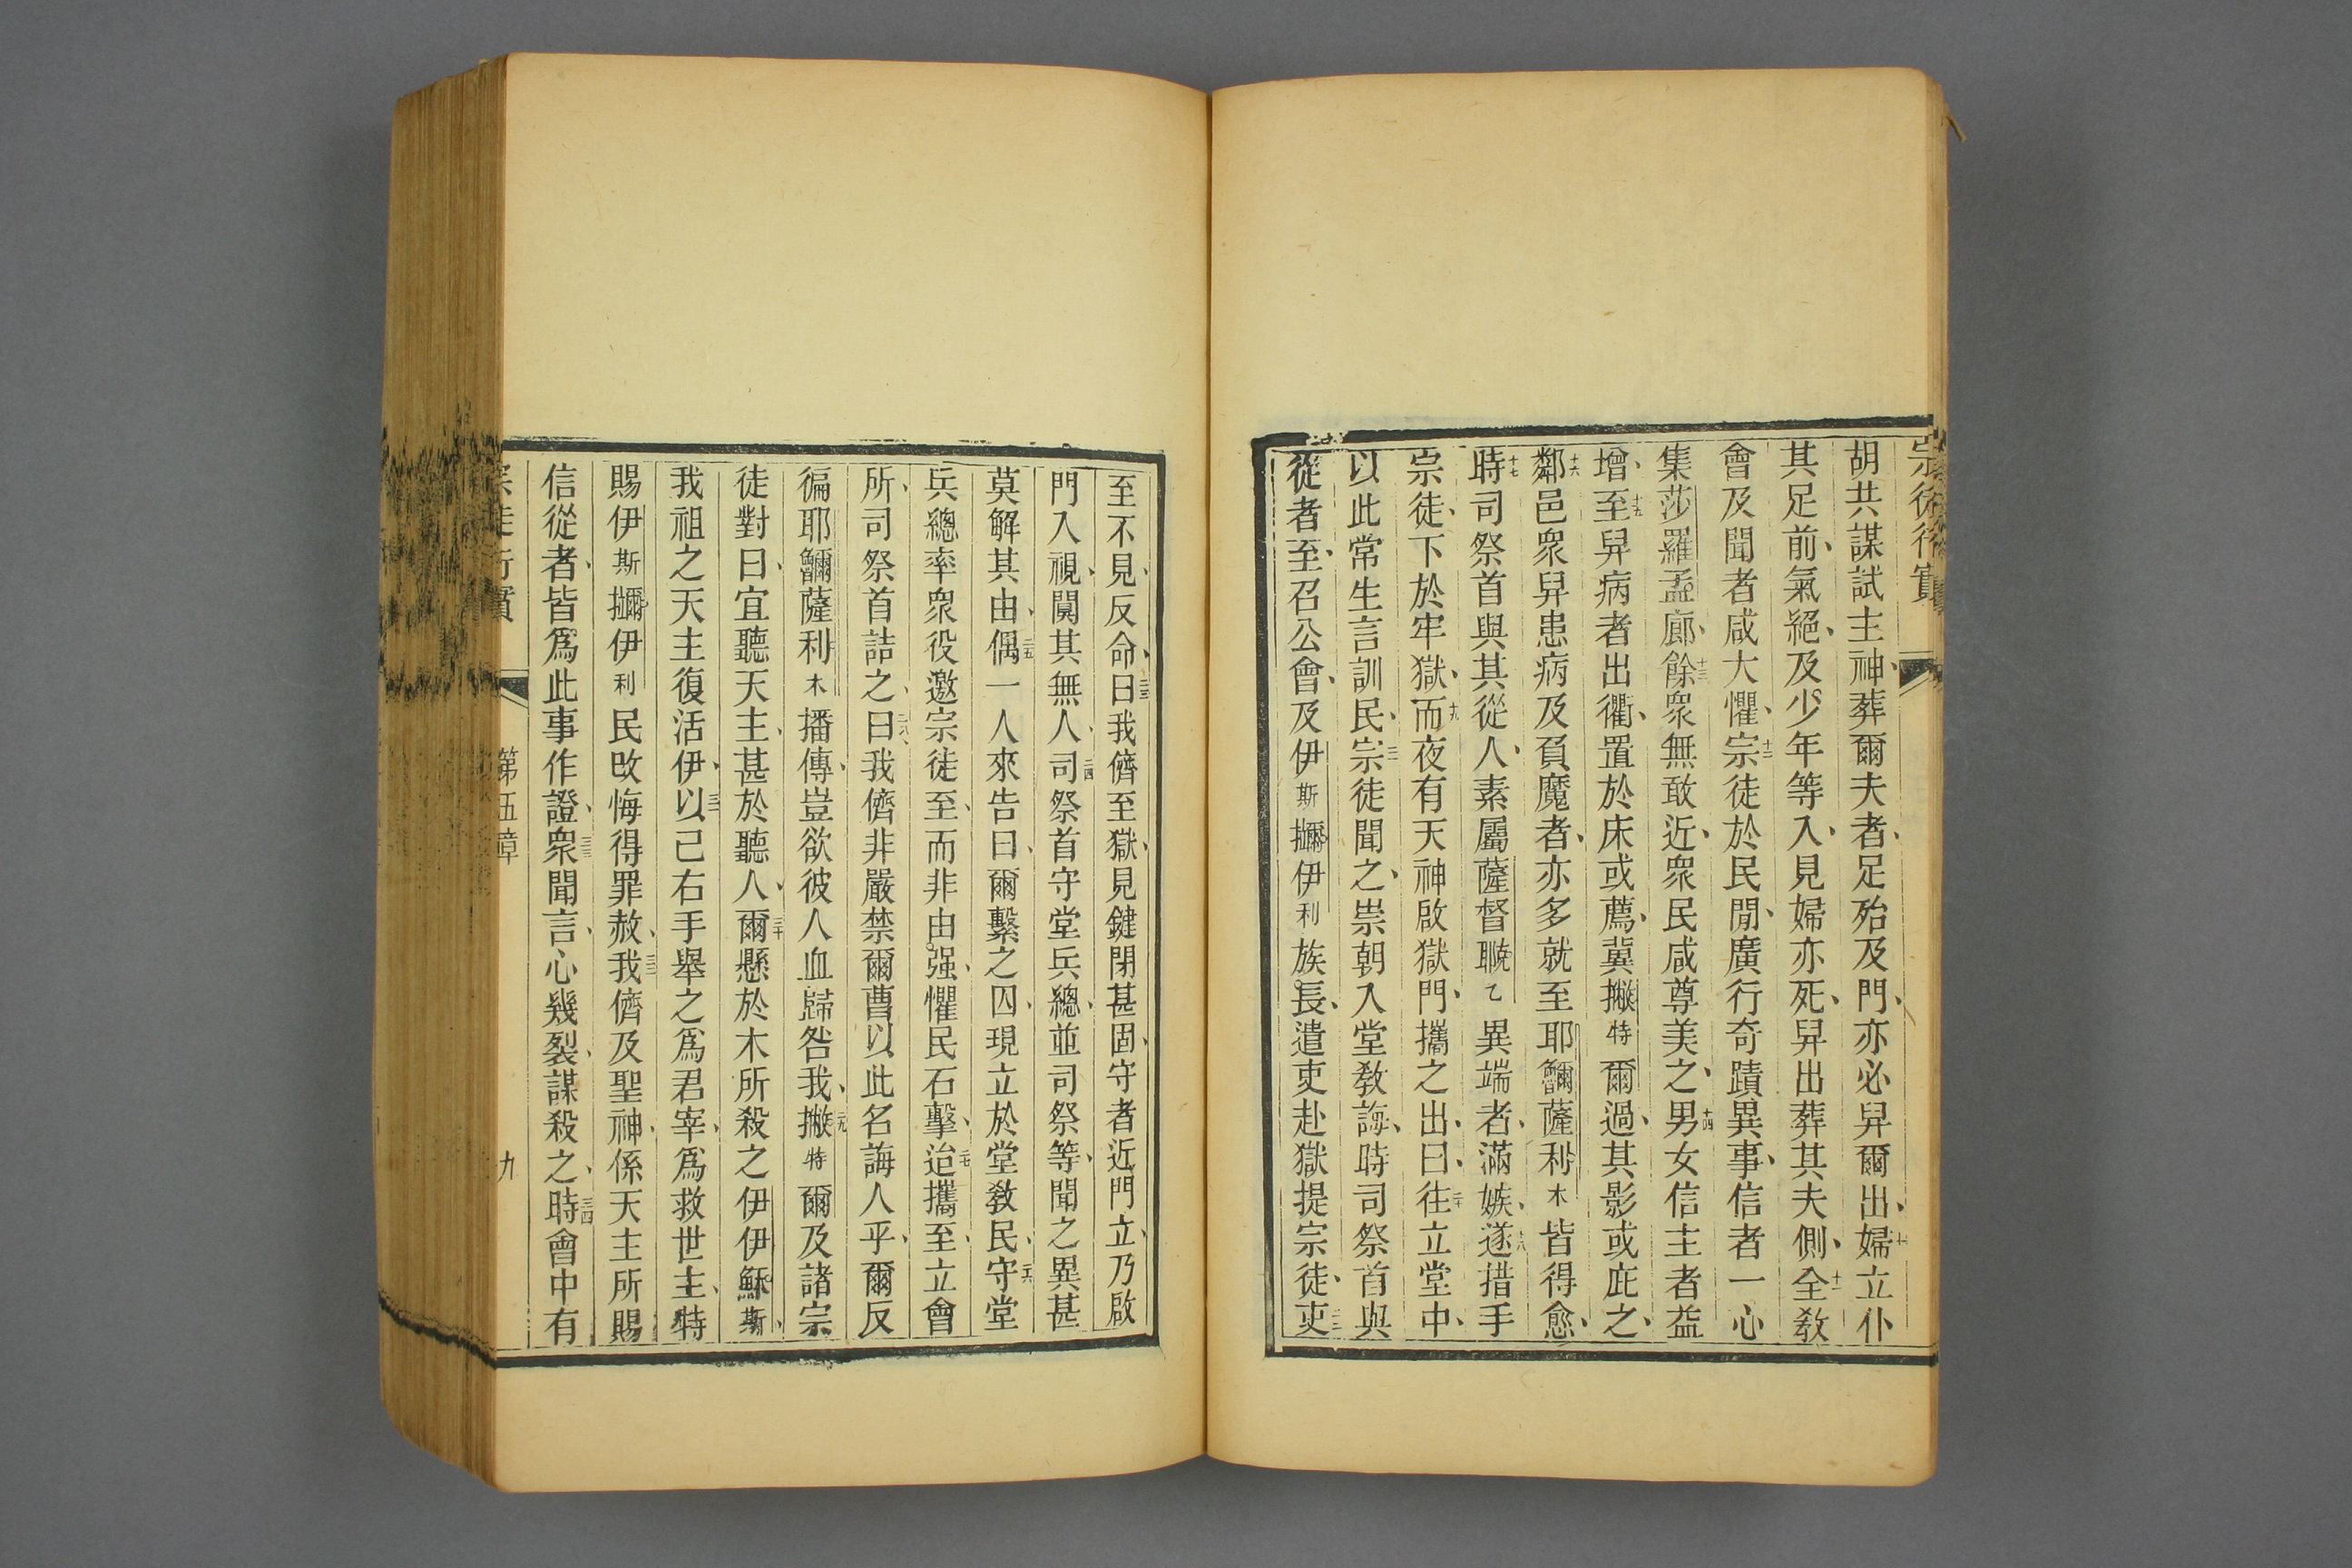 宗徒行實
胡共謀試主神、葬爾夫者、足殆及門、亦必舁爾出、十婦立仆
其足前、氣絕、及少年等入、見婦亦死、舁出葬其夫側、十一全敎
會及聞者咸大懼、十二宗徒於民閒、廣行奇蹟異事、信者一心
集莎羅孟廊、十三餘衆無敢近、衆民咸尊美之、十四男女信主者益
增、十五至舁病者出衢、置於床或薦、冀撇特爾過、其影或庇之、
十六鄰邑衆舁患病及負魔者、亦多就至耶嚕薩利木皆得愈、
十七時司祭首與其從人、素屬薩督㬠乙異端者、滿嫉、十八遂措手
宗徒、下於牢獄、十九而夜有天神啟獄門、攜之出、曰、二十往立堂中、
以此常生言訓民、二一宗徒聞之、祟朝入堂敎誨、時司祭首與
從者至、召公會、及伊斯擟伊利族長、遣吏赴獄提宗徒、二二吏
至不見、反命、二三曰我儕至獄、見鍵閉甚固、守者近門立、乃啟
門入視、闃其無人、二四司祭首守堂兵總、並司祭等、聞之異甚
莫解其由、二五偶一人來告曰、爾繫之囚、現立於堂敎民、二六守堂
兵總率衆役邀宗徒至、而非由强、懼民石擊、二七迨攜至、立會
所、司祭首詰之、二八曰、我儕非嚴禁爾曹以此名誨人乎、爾反
徧耶嚕薩利木播傳、豈欲彼人血歸咎我、二九撇特爾及諸宗
徒對曰、宜聽天主、甚於聽人、三十爾懸於木所殺之伊伊穌斯、
我祖之天主復活伊、三一以己右手舉之爲君宰、爲救世主、特
賜伊斯擟伊利民改悔得罪赦、三二我儕及聖神、係天主所賜
信從者、皆爲此事作證、三三衆聞言、心幾裂、謀殺之、三四時會中有
宗徒行實 第五章 九